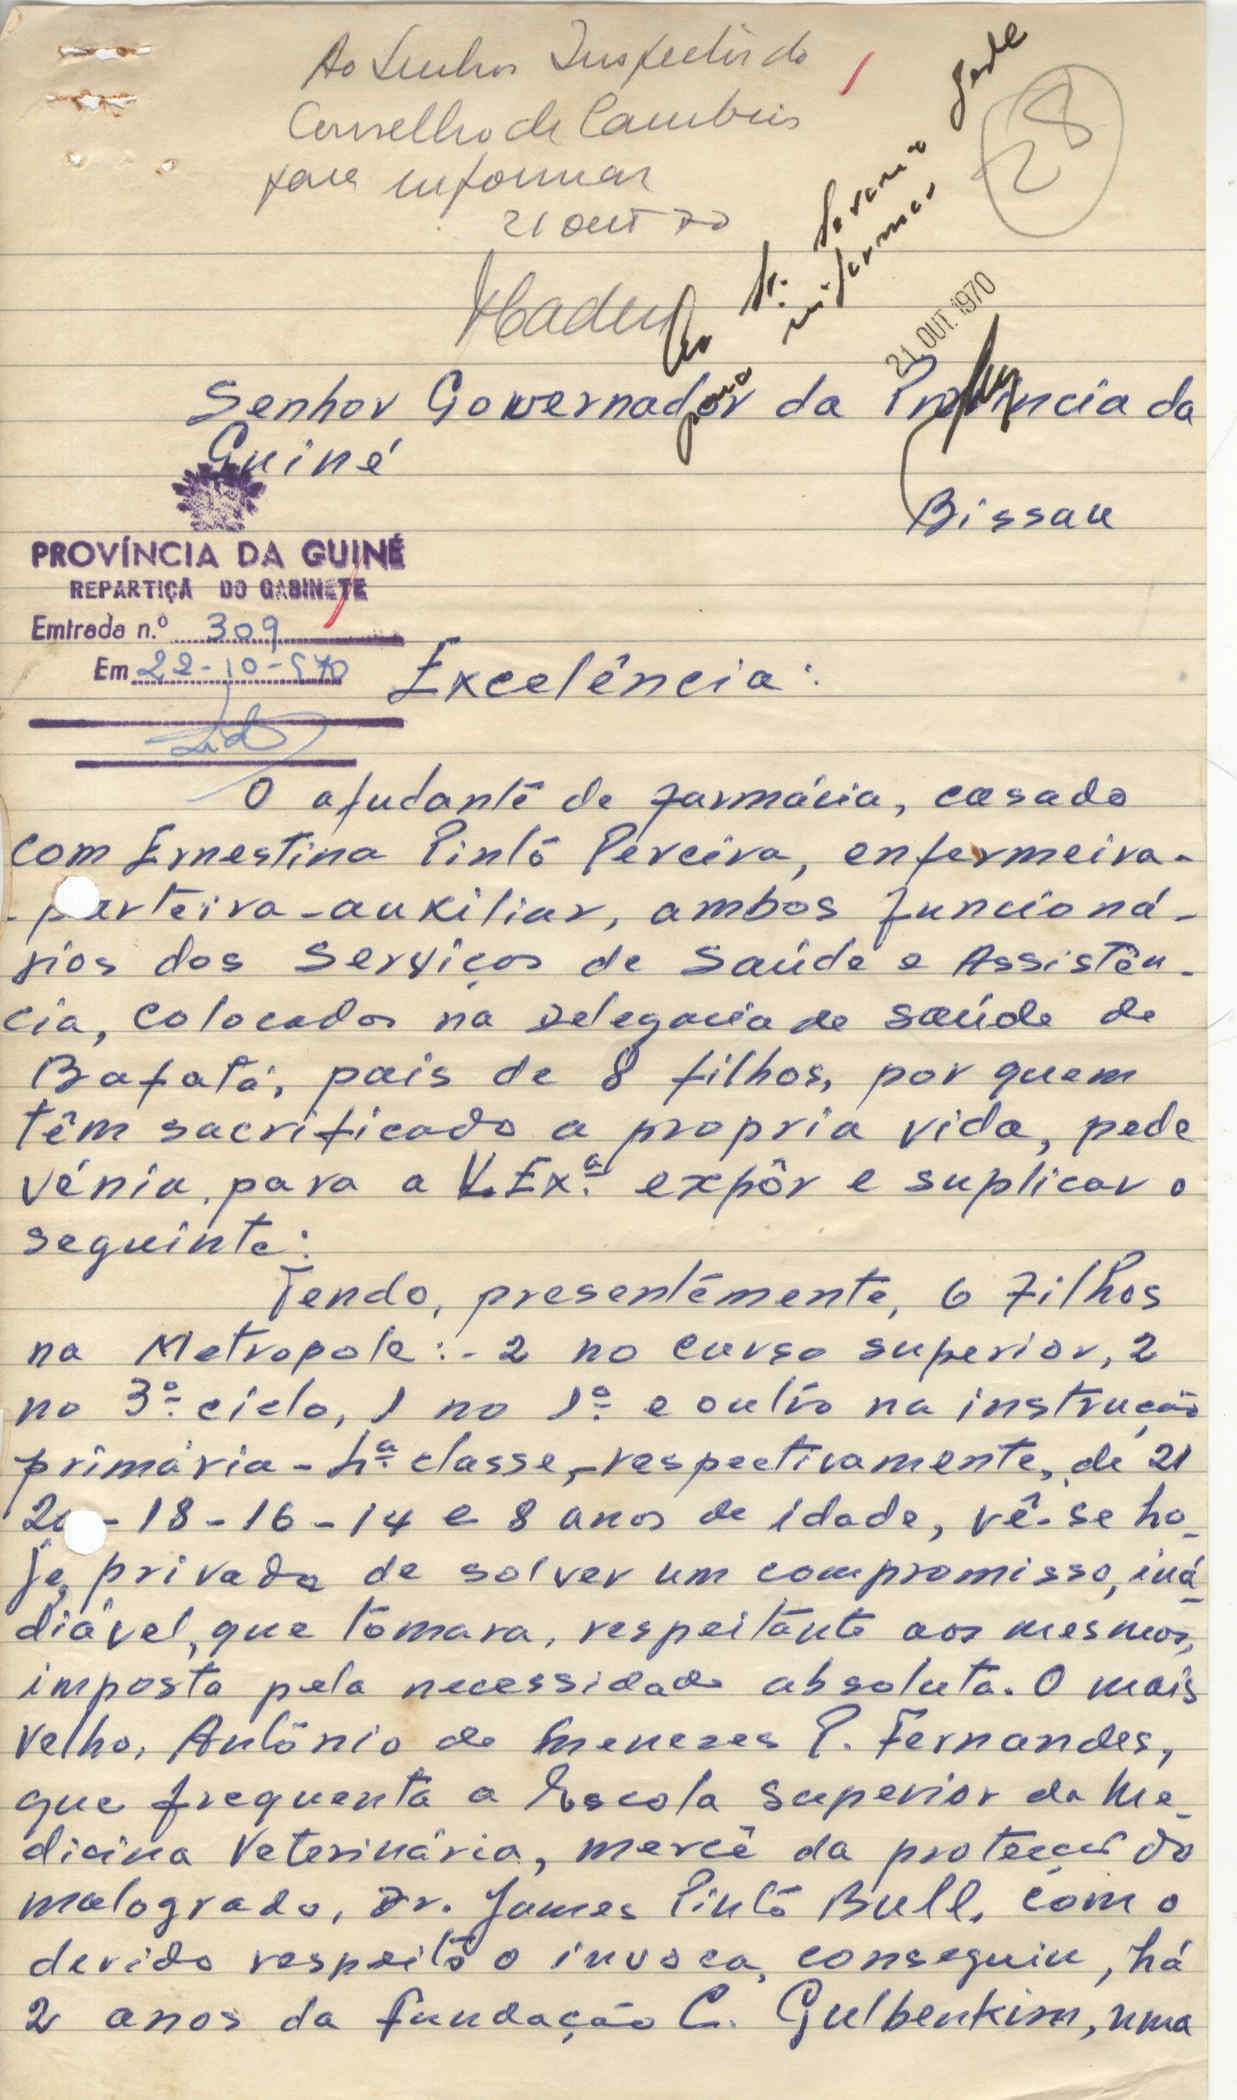 Ao Senhor Inspector do
Conselho de Cambios
para informar
21 OUT 70
28
Ao Sr.
para informar
21 OUT. 1970
Senhor Governador da Província da
Guiné
Bissau
PROVÍNCIA DA GUINÉ
REPARTIÇÃ DO GABINETE
Entrada n.º 309
Em 22-10-970
Excelência:
O ajudante de farmácia, casado
com Ernestina Pinto Pereira, enfermeira-
-parteira-auxiliar, ambos funcioná-
rios dos Serviços de Saúde e Assistên-
cia, colocados na Delegacia de Saúde de
Bafatá, pais de 8 filhos, por quem
têm sacrificado a propria vida, pede
vénia, para a V. Ex.ª expôr e suplicar o
seguinte:
Tendo, presentemente, 6 filhos
na Metropole:- 2 no curso superior, 2
no 3.º ciclo, 1 no 1.º e outro na instrução
primária - 4.ª classe, - respectivamente, de 21
20 - 18 - 16 - 14 e 8 anos de idade, vê-se ho-
je, privado de solver um compromisso, iná-
diável, que tomara, respeitante aos mesmos,
imposta pela necessidade absoluta. O mais
velho, António de Menezes P. Fernandes,
que frequenta a Escola Superior de Me-
dicina Veterinária, mercê da protecção do
malogrado, Dr. James Pinto Bull, com o
devido respeito o invoca, conseguiu, há
2 anos da Fundação C. Gulbenkian, uma